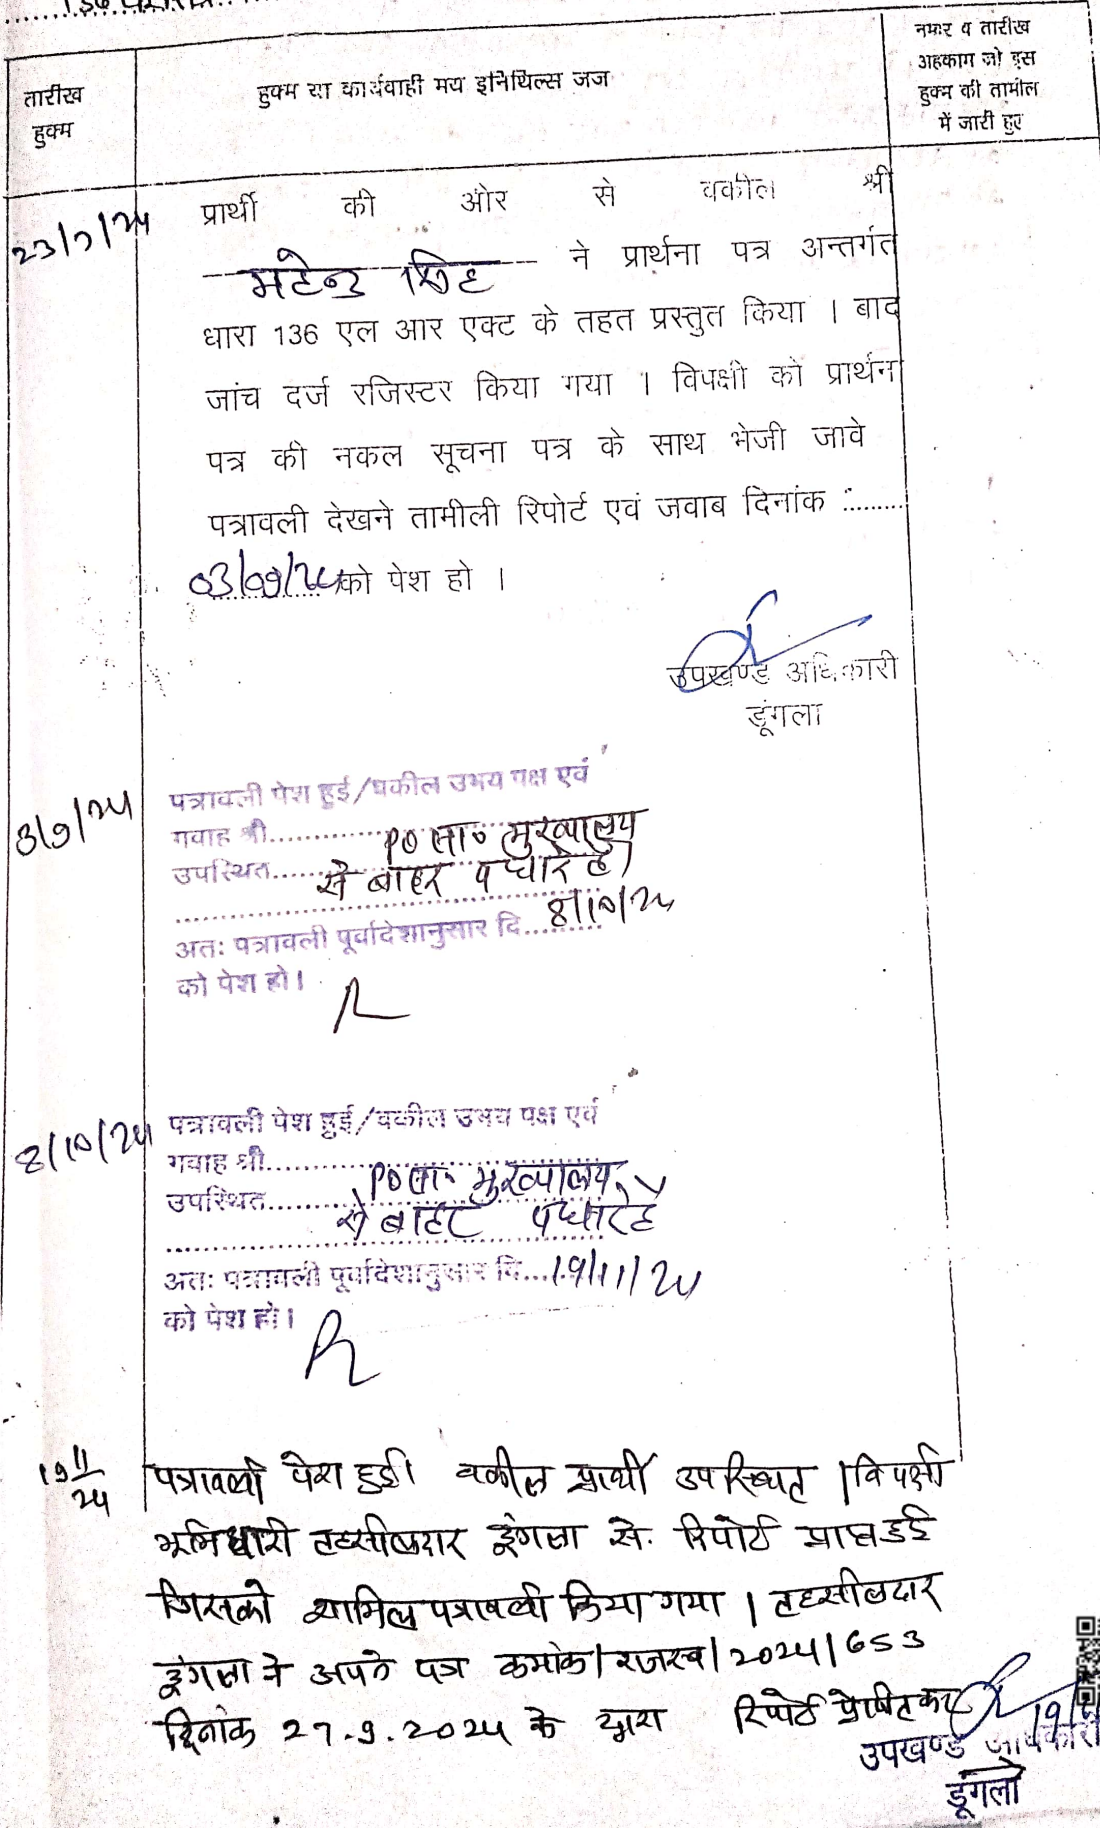 तारीख
हुक्म
हुक्म या कार्यवाही मय इनिथिल्स जज
नम्बर व तारीख
अहकाम जो इस
हुक्म की तामील
में जारी हुए
23/7/24
प्रार्थी की ओर से वकील श्री
महेन्द्र सिंह ने प्रार्थना पत्र अन्तर्गत
धारा 136 एल आर एक्ट के तहत प्रस्तुत किया । बाद
जांच दर्ज रजिस्टर किया गया । विपक्षी को प्रार्थन
पत्र की नकल सूचना पत्र के साथ भेजी जावे
पत्रावली देखने तामीली रिपोर्ट एवं जवाब दिनांक :.........
03/09/24 को पेश हो ।
उपखण्ड अधिकारी
डूंगला
3/9/24
पत्रावली पेश हुई/वकील उभय पक्ष एवं
गवाह श्री............ PO सा० मुख्यालय
उपस्थित...... से बाहर पधारे है।
अतः पत्रावली पूर्वादेशानुसार दि.. 8/10/24
को पेश हो।
8/10/24
पत्रावली पेश हुई/वकील उभय पक्ष एवं
गवाह श्री............
उपस्थित......... PO सा. मुख्यालय
से बाहर पधारे है
अतः पत्रावली पूर्वादेशानुसार दि... 19/11/24
को पेश हो।
19/11/24
पत्रावली पेश हुई। वकील प्रार्थी उपस्थित । विपक्षी
भूमिधारी तहसीलदार डूंगला से. रिपोर्ट प्राप्त हुई
जिसको शामिल पत्रावली किया गया । तहसीलदार
डूंगला ने अपने पत्र क्रमांक/राजस्व/2024/653
दिनांक 27.9.2024 के द्वारा रिपोर्ट प्रेषित कर
उपखण्ड अधिकारी
डूंगला